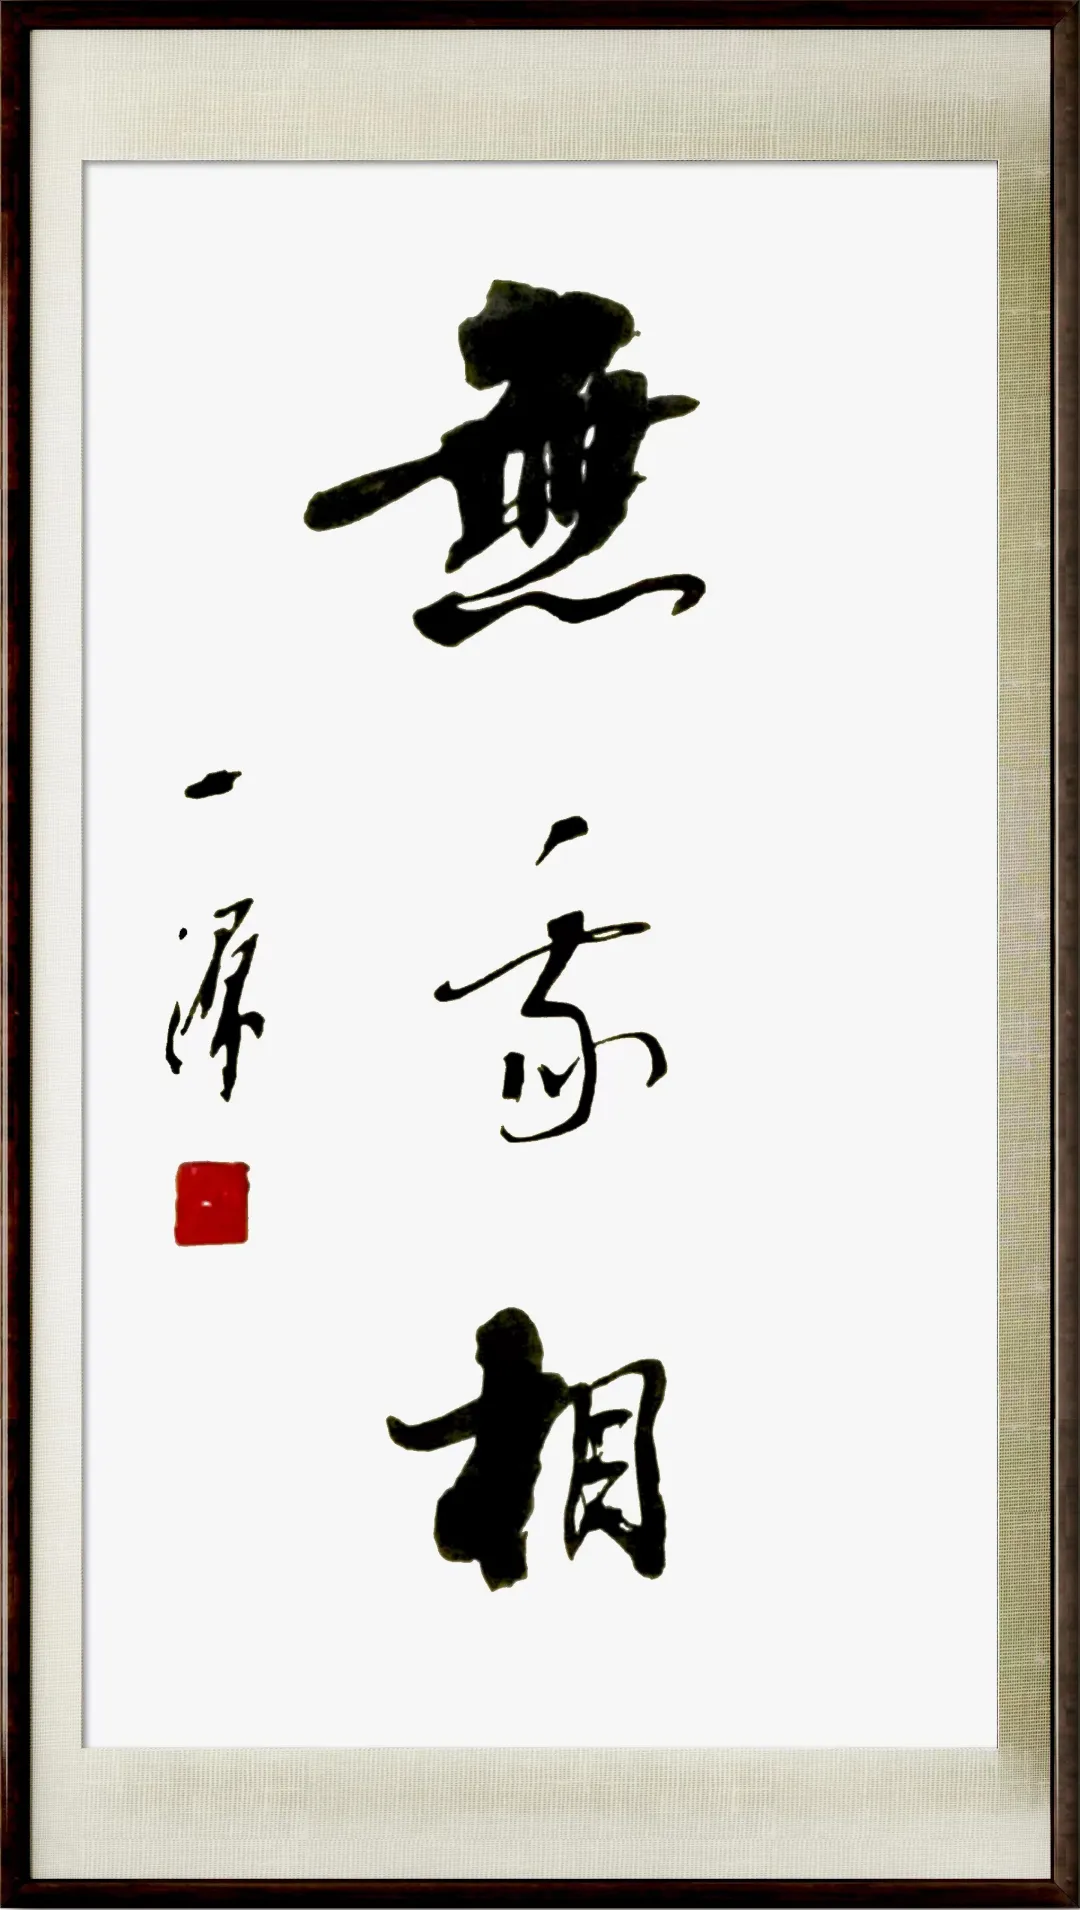 無我相
一源